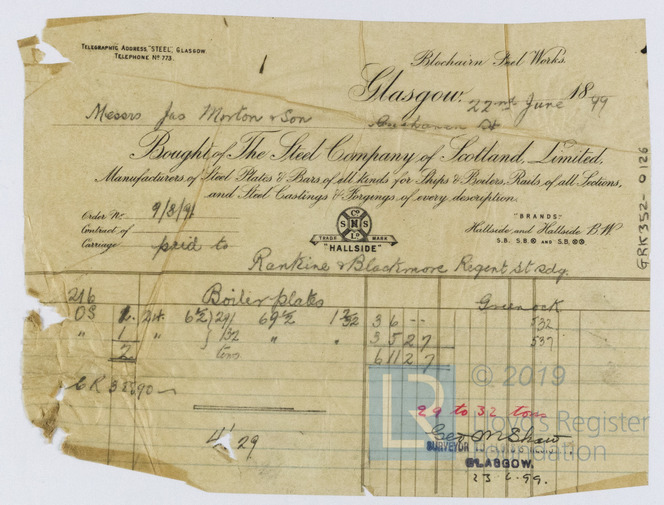 TELEGRAPHIC ADDRESS "STEEL", GLASGOW.
TELEPHONE No 773.
Blochairn Steel Works.
Glasgow, 22nd June 1899
Messrs Jas Morton & Son
Buchanan St
Bought of The Steel Company of Scotland, Limited,
Manufacturers of Steel Plates & Bars of all kinds for Ships & Boilers, Rails of all Sections,
and Steel Castings & Forgings of every description.
Order No 9/8/96
Contract of
Carriage paid to
SMS
Co
LD
TRADE MARK
"HALLSIDE"
"BRANDS"
Hallside and Hallside B.W.
S.B. S.B. AND S.B.
Rankine & Blackmore Regent St Sdg.
Greenock
216 Boiler plates
OS 1 24 6½ 291 69½ 1 3/32 3 6 -- 532
" 1 " 132 " " 3 5 2 7 537
2 tons 6 11 2 7
29
29 to 32 tons
Geo M Shaw
SURVEYOR TO LLOYD'S REGISTER
GLASGOW.
23-6-99.
GRK352-0126
LR
© 2019
Lloyd's Register
Foundation